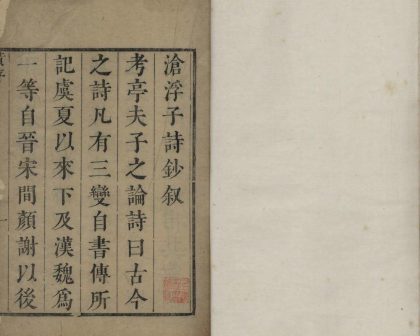 滄浮子詩鈔叙
考亭夫子之論詩曰古今
之詩凡有三變自書傳所
記虞夏以來下及漢魏爲
一等自晉宋間顏謝以後